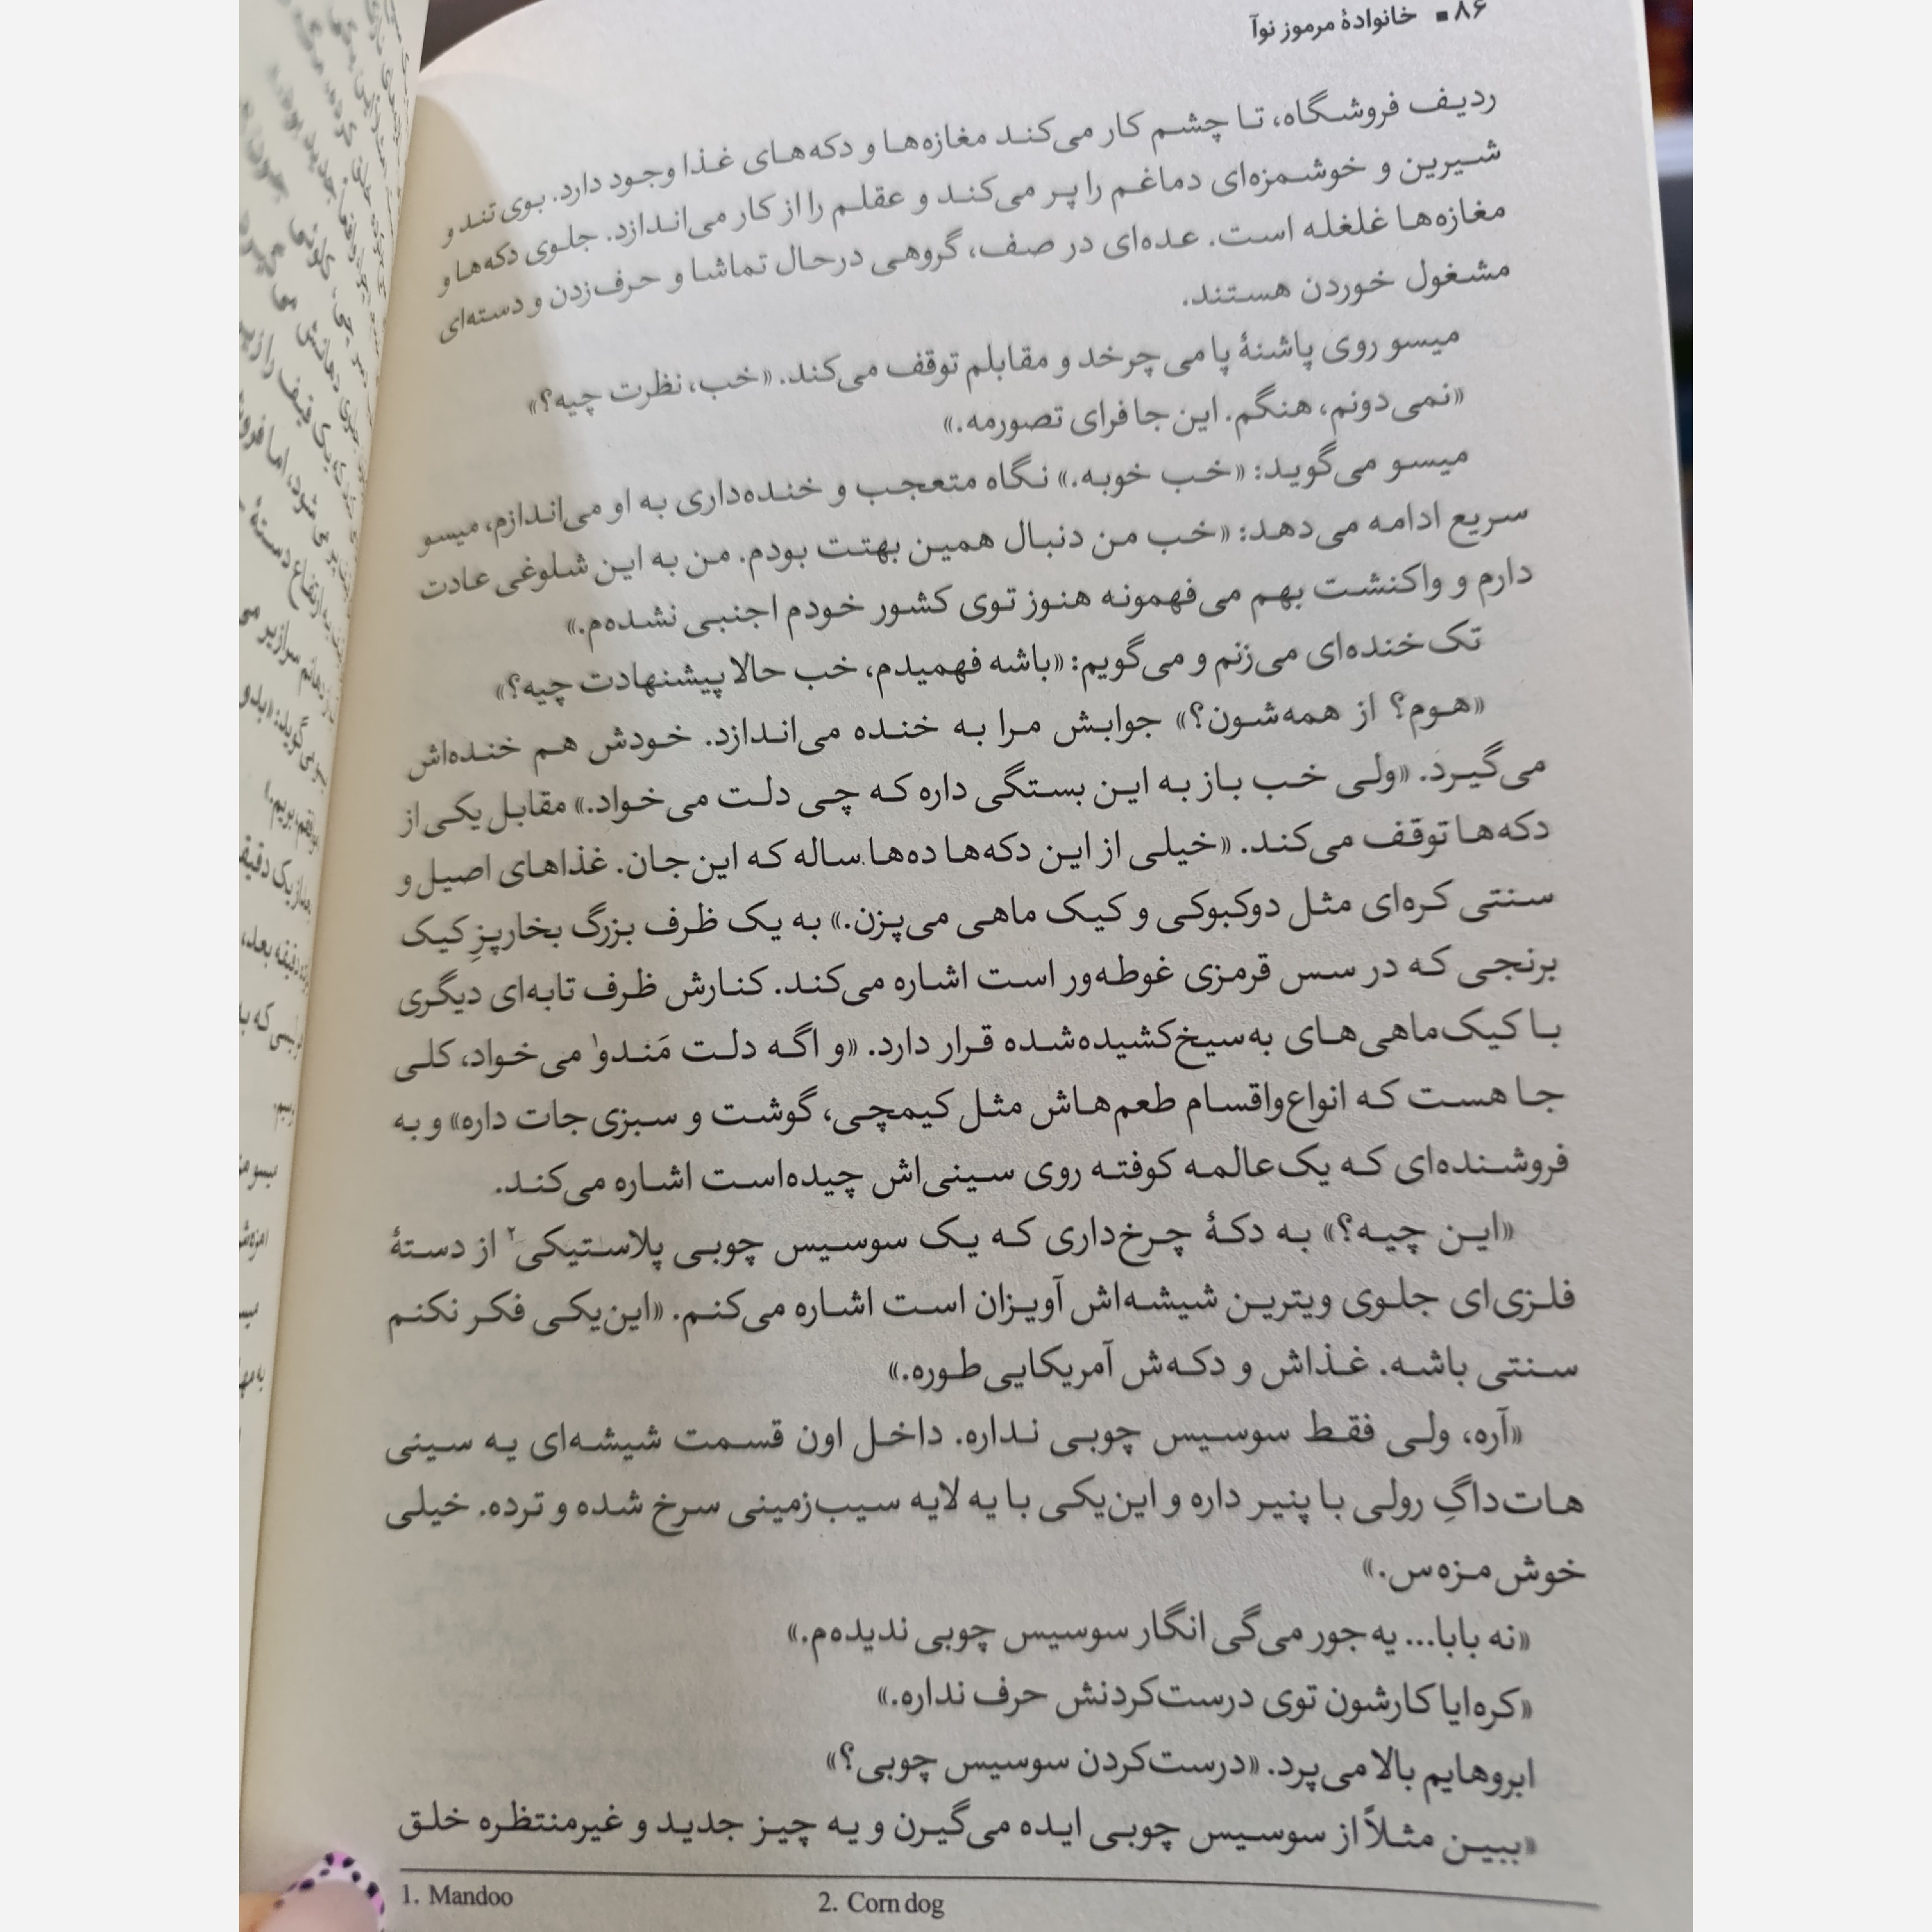 ۸۶ ■ خانوادهٔ مرموز نوآ
ردیف فروشگاه، تا چشم کار می‌کند مغازه‌ها و دکه‌های غذا وجود دارد. بوی تند و
شیرین و خوشمزه‌ای دماغم را پر می‌کند و عقلم را از کار می‌اندازد. جلوی دکه‌ها و
مغازه‌ها غلغله است. عده‌ای در صف، گروهی درحال تماشا و حرف‌زدن و دسته‌ای
مشغول خوردن هستند.
میسو روی پاشنهٔ پا می چرخد و مقابلم توقف می‌کند. «خب، نظرت چیه؟»
«نمی‌دونم، هنگم. این‌جا فرای تصورمه.»
میسو می‌گوید: «خب خوبه.» نگاه متعجب و خنده‌داری به او می‌اندازم، میسو
سریع ادامه می‌دهد: «خب من دنبال همین بهتت بودم. من به این شلوغی عادت
دارم و واکنشت بهم می‌فهمونه هنوز توی کشور خودم اجنبی نشده‌م.»
تک‌خنده‌ای می‌زنم و می‌گویم: «باشه فهمیدم، خب حالا پیشنهادت چیه؟»
«هوم؟ از همه‌شون؟» جوابش مرا به خنده می‌اندازد. خودش هم خنده‌اش
می‌گیرد. «ولی خب باز به این بستگی داره که چی دلت می‌خواد.» مقابل یکی از
دکه‌ها توقف می‌کند. «خیلی از این دکه‌ها ده‌ها ساله که این‌جان. غذاهای اصیل و
سنتی کره‌ای مثل دوکبوکی و کیک ماهی می‌پزن.» به یک ظرف بزرگ بخارپزِ کیک
برنجی که در سس قرمزی غوطه‌ور است اشاره می‌کند. کنارش ظرف تابه‌ای دیگری
با کیک‌ماهی‌های به‌سیخ‌کشیده‌شده قرار دارد. «و اگه دلت مَندو۱ می‌خواد، کلی
جا هست که انواع‌واقسام طعم‌هاش مثل کیمچی، گوشت و سبزی‌جات داره» و به
فروشنده‌ای که یک‌عالمه کوفته روی سینی‌اش چیده‌است اشاره می‌کند.
«این چیه؟» به دکهٔ چرخ‌داری که یک سوسیس چوبی پلاستیکی۲ از دستهٔ
فلزی‌ای جلوی ویترین شیشه‌اش آویزان است اشاره می‌کنم. «این‌یکی فکر نکنم
سنتی باشه. غذاش و دکه‌ش آمریکایی‌طوره.»
«آره، ولی فقط سوسیس چوبی نداره. داخل اون قسمت شیشه‌ای یه سینی
هات‌داگِ رولی با پنیر داره و این‌یکی با یه لایه سیب‌زمینی سرخ شده و ترده. خیلی
خوش‌مزه‌س.»
«نه بابا... یه‌جور می‌گی انگار سوسیس چوبی ندیده‌م.»
«کره‌ایا کارشون توی درست‌کردنش حرف نداره.»
ابروهایم بالا می‌پرد. «درست‌کردن سوسیس چوبی؟»
«ببین مثلاً از سوسیس چوبی ایده می‌گیرن و یه چیز جدید و غیرمنتظره خلق
1. Mandoo
2. Corn dog